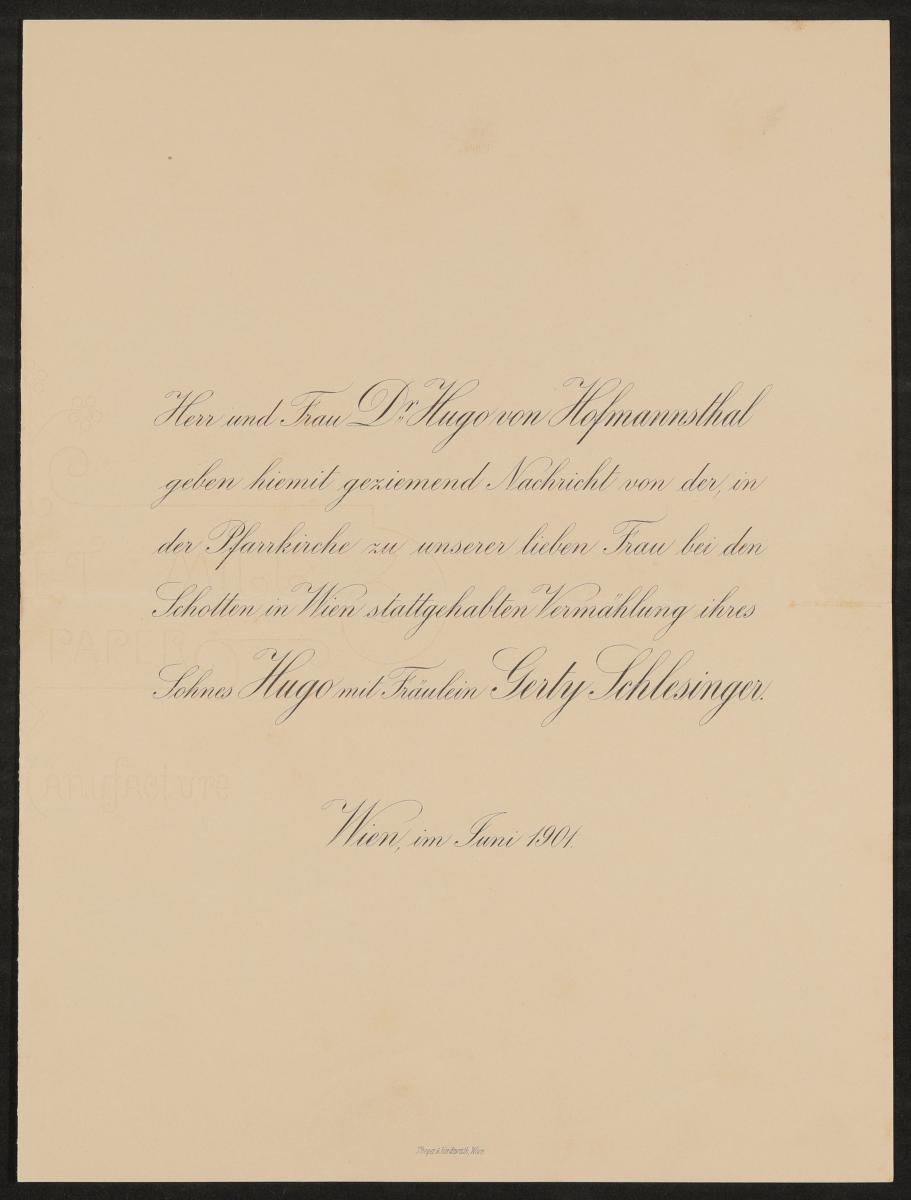 Herr und Frau Dr. Hugo von Hofmannsthal
geben hiemit geziemend Nachricht von der, in
der Pfarrkirche zu unserer lieben Frau bei den
Schotten in Wien stattgehabten Vermählung ihres
Sohnes Hugo mit Fräulein Gerty Schlesinger.
Wien, im Juni 1901.
PAPER
Manufacture
Theyer & Hardtmuth, Wien